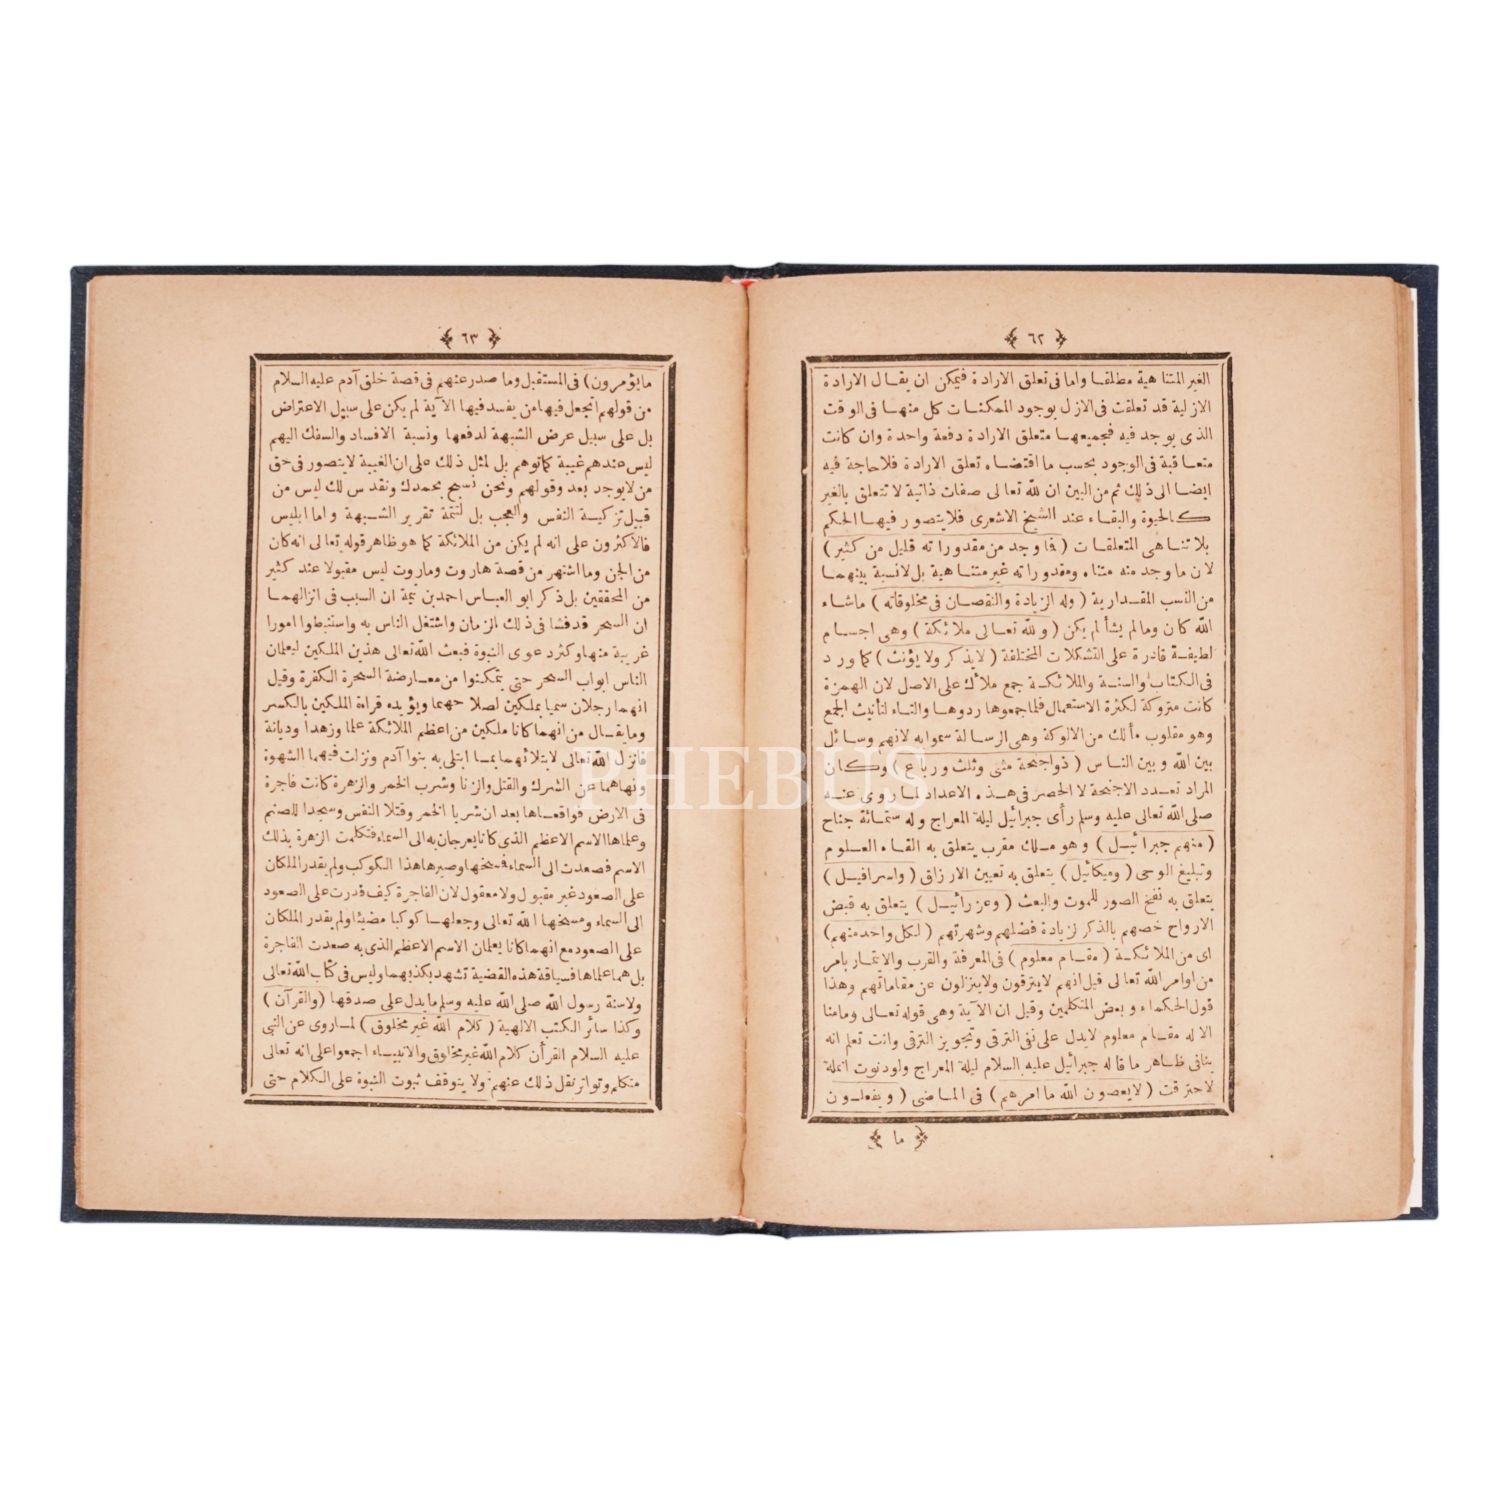 ﴿ ٦٢ ﴾
الغير المتناهية مطلقا واما فى تعلق الارادة فيمكن ان يقال الارادة
الازلية قد تعلقت فى الازل بوجود الممكنات كل منها فى الوقت
الذى يوجد فيه فجميعها متعلق الارادة دفعة واحدة وان كانت
متعاقبة فى الوجود بحسب ما اقتضاه تعلق الارادة فلا حاجة فيه
ايضا الى ذلك ثم من البين ان لله تعالى صفات ذاتية لا تتعلق بالغير
كالحيوة والبقاء عند الشيخ الاشعرى فلا يتصور فيها الحكم
بلا تناهى المتعلقات ( فما وجد من مقدوراته قليل من كثير )
لان ما وجد منه متناه ومقدوراته غير متناهية بل لا نسبة بينهما
من النسب المقدارية ( وله الزيادة والنقصان فى مخلوقاته ) ماشاء
الله كان ومالم يشأ لم يكن ( ولله تعالى ملائكة ) وهى اجسام
لطيفة قادرة على التشكلات المختلفة ( لا يذكر ولا يؤنث ) كما ورد
فى الكتاب والسنة والملائكة جمع ملأك على الاصل لان الهمزة
كانت متروكة لكثرة الاستعمال فلما جمعوها ردوها والتاء لتأنيث الجمع
وهو مقلوب مألك من الالوكة وهى الرسالة سموا به لانهم وسائل
بين الله وبين الناس ( ذوا جنحة مثنى وثلث ورباع ) وكان
المراد تعدد الاجنحة لا الحصر فى هذه الاعداد لما روى عنه
صلى الله تعالى عليه وسلم رأى جبرائيل ليلة المعراج وله ستمائة جناح
( منهم جبرائيل ) وهو ملك مقرب يتعلق به القاء العلوم
وتبليغ الوحى ( وميكائيل ) يتعلق به تعيين الارزاق ( واسرافيل )
يتعلق به نفخ الصور للموت والبعث ( وعزرائيل ) يتعلق به قبض
الارواح خصهم بالذكر لزيادة فضلهم وشهرتهم ( لكل واحد منهم )
اى من الملائكة ( مقام معلوم ) فى المعرفة والقرب والايتمار بامر
من اوامر الله تعالى قيل انهم لا يترقون ولا يتنزلون عن مقاماتهم وهذا
قول الحكماء و بعض المتكلمين وقيل ان الآية وهى قوله تعالى ومامنا
الا له مقام معلوم لا يدل على نفى الترقى وتجويز الترقى وانت تعلم انه
ينافى ظاهر ما قاله جبرائيل عليه السلام ليلة المعراج ولو دنوت انملة
لاحترقت ( لا يعصون الله ما امرهم ) فى الماضى ( ويفعلون
﴿ ما ﴾
﴿ ٦٣ ﴾
ما يؤمرون ) فى المستقبل وما صدر عنهم فى قصة خلق آدم عليه السلام
من قولهم اتجعل فيها من يفسد فيها الآية لم يكن على سبيل الاعتراض
بل على سبيل عرض الشبهة لدفعها ونسبة الافساد والسفك اليهم
ليس عندهم غيبة كما توهم بل لمثل ذلك على ان الغيبة لا يتصور فى حق
من لا يوجد بعد وقولهم ونحن نسبح بحمدك ونقدس لك ليس من
قبيل تزكية النفس والعجب بل لتتمة تقرير الشبهة واما ابليس
فالاكثرون على انه لم يكن من الملائكة كما هو ظاهر قوله تعالى انه كان
من الجن وما اشتهر من قصة هاروت وماروت ليس مقبولا عند كثير
من المحققين بل ذكر ابو العباس احمد بن تيمة ان السبب فى انزالهما
ان السحر قد فشا فى ذلك الزمان واشتغل الناس به واستنبطوا امورا
غريبة منها وكثر دعوى النبوة فبعث الله تعالى هذين الملكين ليعلمان
الناس ابواب السحر حتى يتمكنوا من معارضة السحرة الكفرة وقيل
انهما رجلان سميا بملكين لصلاحهما ويؤيده قراءة الملكين بالكسر
وما يقال من انهما كانا ملكين من اعظم الملائكة علما وزهدا وديانة
فانزل الله تعالى لابتلائهما بما ابتلى به بنوا آدم ونزلت فيهما الشهوة
ونهاهما عن الشرك والقتل والزنا وشرب الخمر والزهرة كانت فاجرة
فى الارض فواقعاها بعد ان شربا الخمر وقتلا النفس وسجدا للصنم
وعلماها الاسم الاعظم الذى كانا يعرجان به الى السماء فتكلمت الزهرة بذلك
الاسم فصعدت الى السماء فمسخها وصيرها هذا الكوكب ولم يقدر الملكان
على الصعود غير مقبول ولا معقول لان الفاجرة كيف قدرت على الصعود
الى السماء ومسخها الله تعالى وجعلها كوكبا مضيئا ولم يقدر الملكان
على الصعود مع انهما كانا يعلمان الاسم الاعظم الذى به صعدت الفاجرة
بل هما علماها فسياقة هذه القضية تشهد بكذبهما وليس فى كتاب الله تعالى
ولا سنة رسول الله صلى الله عليه وسلم ما يدل على صدقها ( والقرآن )
وكذا سائر الكتب الالهية ( كلام الله غير مخلوق ) لما روى عن النبى
عليه السلام القرأن كلام الله غير مخلوق والانبياء اجمعوا على انه تعالى
متكلم وتواتر نقل ذلك عنهم ولا يتوقف ثبوت النبوة على الكلام حتى
PHEBUS